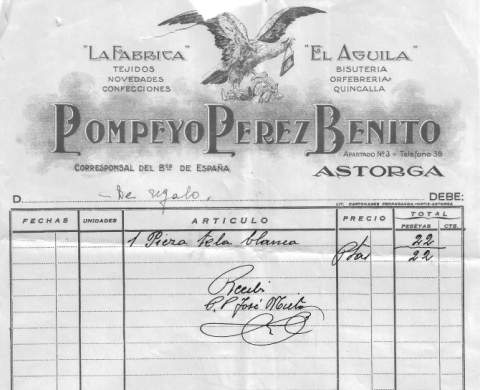 "LA FABRICA" "EL AGUILA"
TEJIDOS BISUTERIA
NOVEDADES ORFEBRERIA
CONFECCIONES QUINCALLA
POMPEYO PEREZ BENITO
APARTADO Nº 3 - Teléfono 38
CORRESPONSAL DEL Bco DE ESPAÑA ASTORGA
D De regalo. DEBE:
LIT. CARTONAJES PROPAGANDA-CORTÉS-ASTORGA
FECHAS UNIDADES ARTICULO PRECIO TOTAL
PESETAS CTS.
1 Pieza tela blanca 22
Ptas 22
Recibí
José Nieto